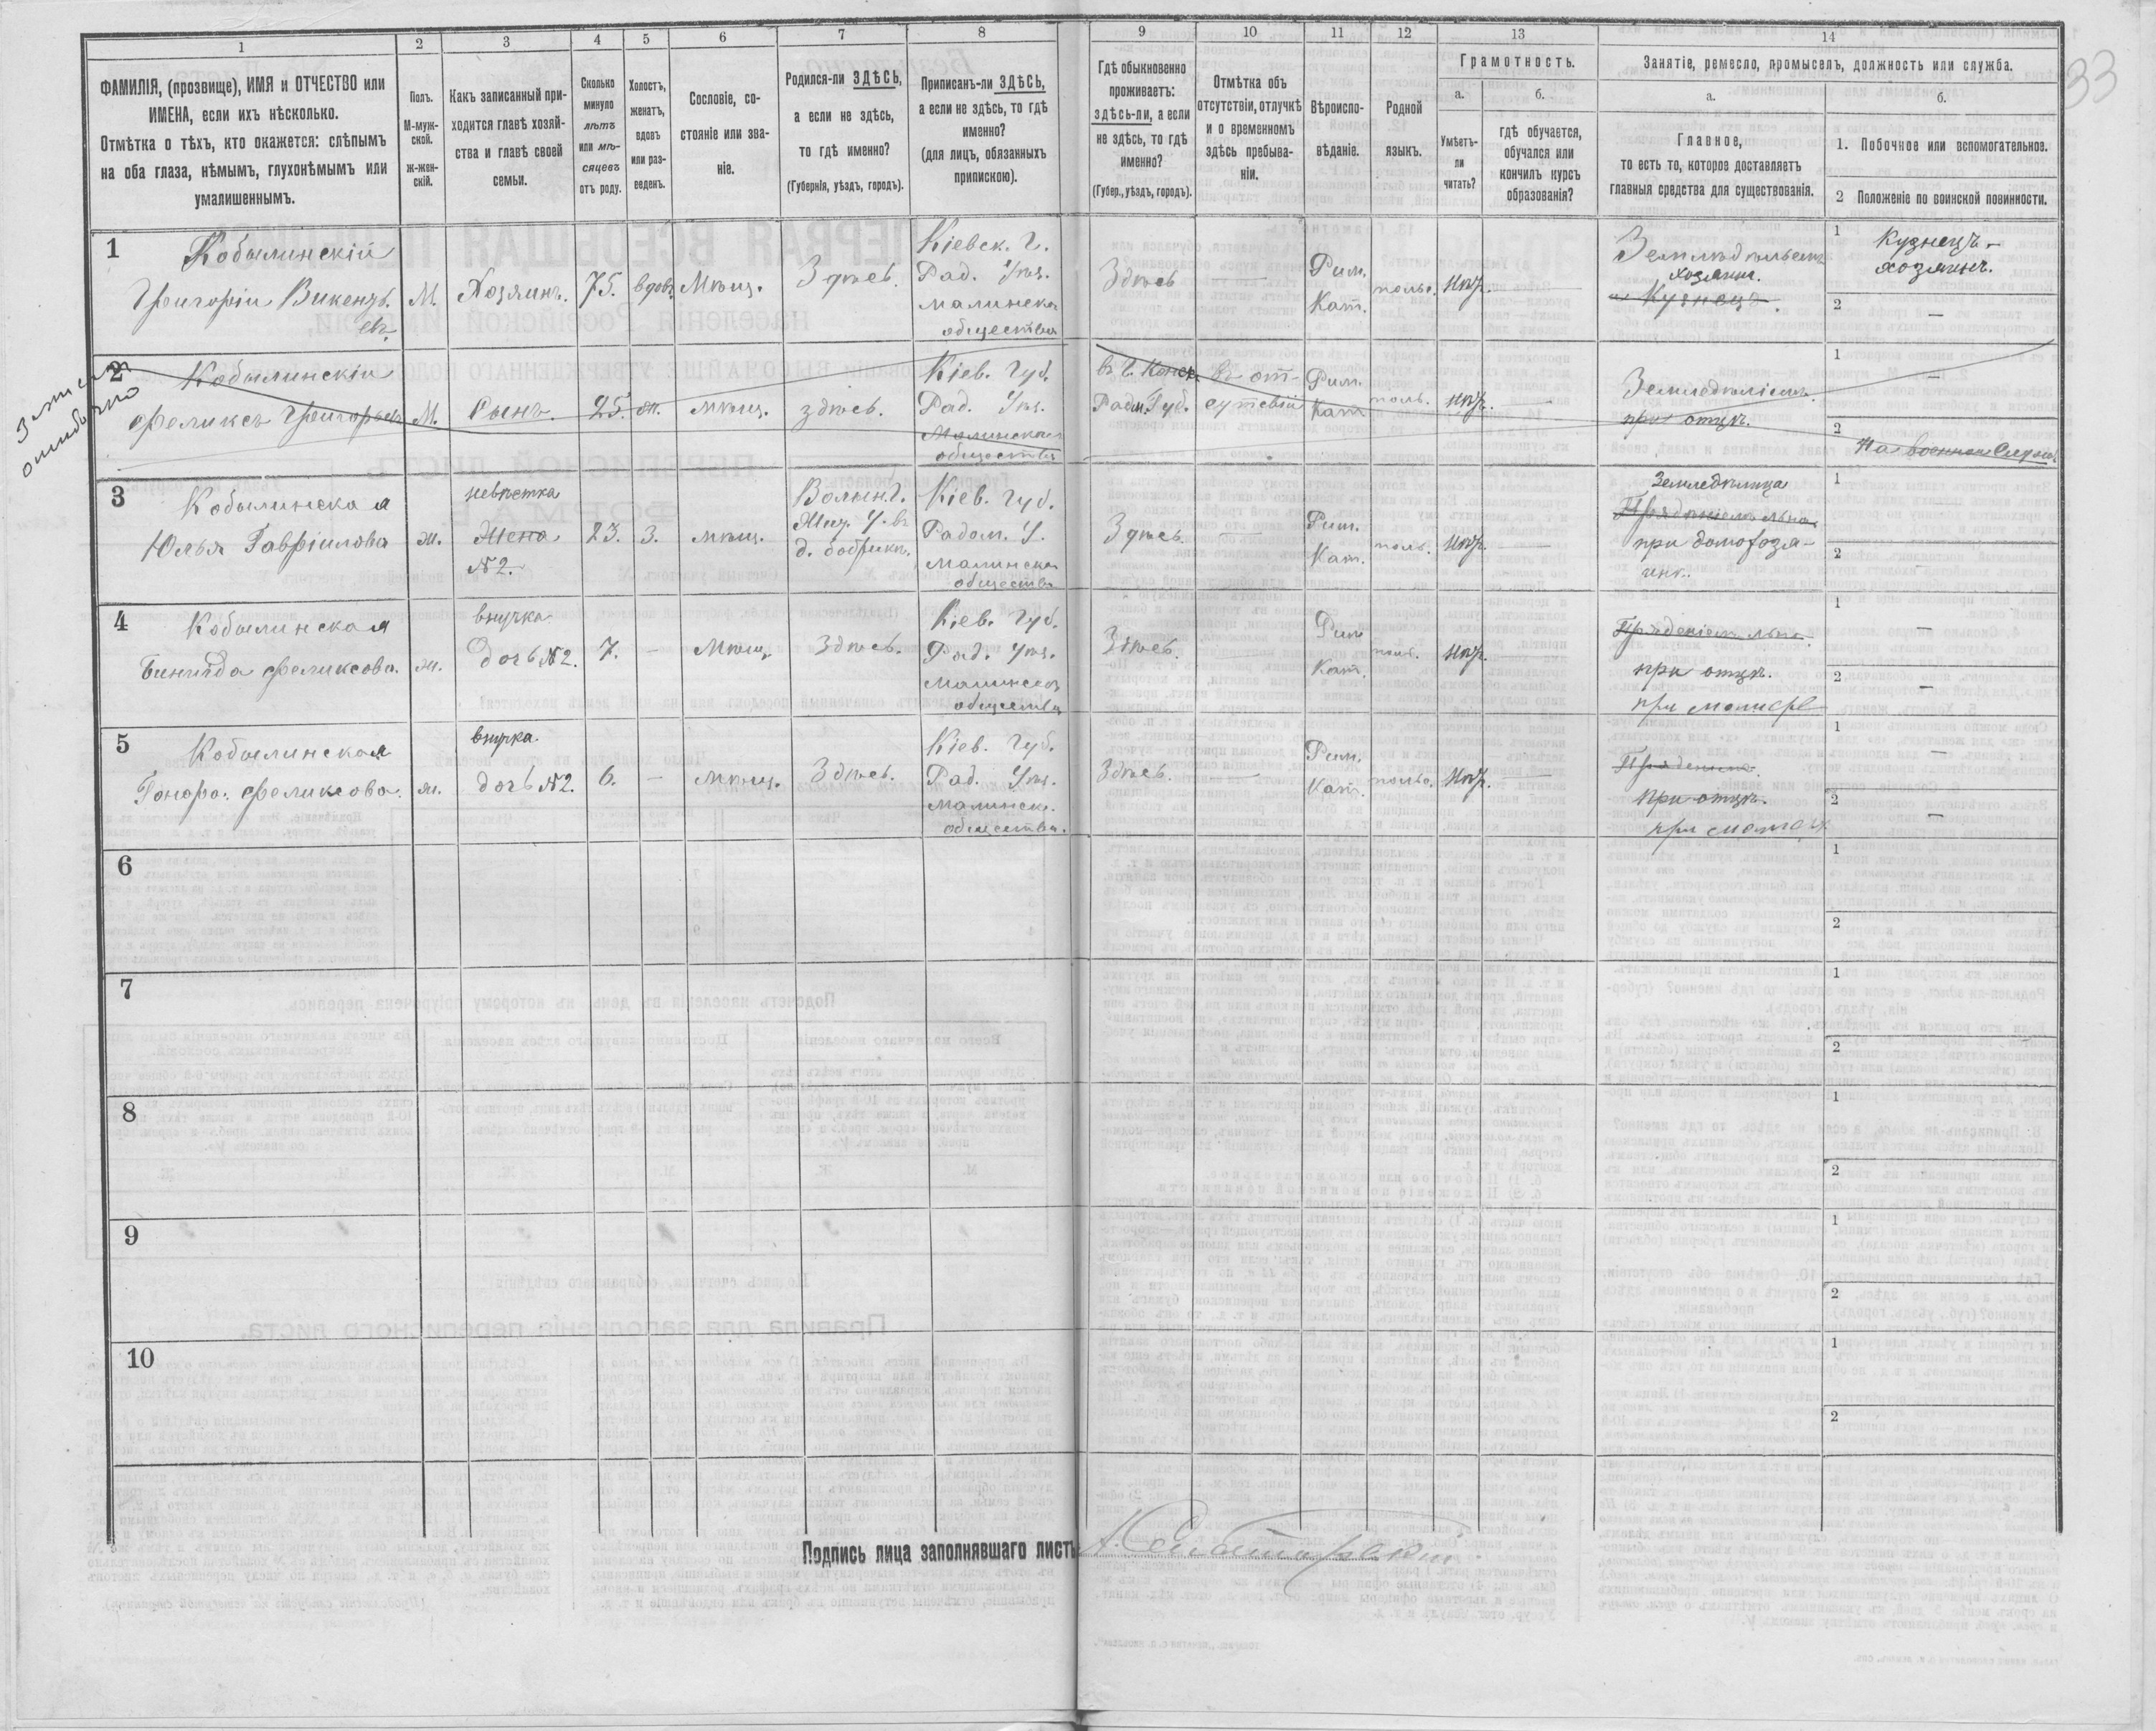 33
1 2 3 4 5 6 7 8 9 10 11 12 13 14
ФАМИЛІЯ, (прозвище), ИМЯ и ОТЧЕСТВО или
ИМЕНА, если ихъ нѣсколько.
Отмѣтка о тѣхъ, кто окажется: слѣпымъ
на оба глаза, нѣмымъ, глухонѣмымъ или
умалишеннымъ.
Полъ.
М-муж-
ской.
ж-жен-
скій.
Какъ записанный при-
ходится главѣ хозяй-
ства и главѣ своей
семьи.
Сколько
минуло
лѣтъ
или мѣ-
сяцевъ
отъ роду.
Холостъ,
женатъ,
вдовъ
или раз-
веденъ.
Сословіе, со-
стояніе или зва-
ніе.
Родился-ли ЗДѢСЬ,
а если не здѣсь,
то гдѣ именно?
(Губернія, уѣздъ, городъ).
Приписанъ-ли ЗДѢСЬ,
а если не здѣсь, то гдѣ
именно?
(для лицъ, обязанныхъ
припискою).
Гдѣ обыкновенно
проживаетъ:
здѣсь-ли, а если
не здѣсь, то гдѣ
именно?
(Губер., уѣздъ, городъ).
Отмѣтка объ
отсутствіи, отлучкѣ
и о временномъ
здѣсь пребыва-
ніи.
Вѣроиспо-
вѣданіе.
Родной
языкъ.
Грамотность.
а.
Умѣетъ-
ли
читать?
б.
гдѣ обучается,
обучался или
кончилъ курсъ
образованія?
Занятіе, ремесло, промыселъ, должность или служба.
а.
Главное,
то есть то, которое доставляетъ
главныя средства для существованія.
б.
1. Побочное или вспомогательное.
2 Положеніе по воинской повинности.
1
Кобылинскій
Григорій Викент.
М.
Хозяинъ.
75.
вдов.
Мѣщ.
Здѣсь.
Кіевск. г.
Рад. Уѣз.
малинска
общества
Здѣсь
—
Рим.
Кат.
польс.
нѣт.
—
Земледѣлецъ
хозяинъ.
и Кузнецъ.
1
Кузнецъ-
хозяинъ.
2
—
Записан
ошибочно
2
Кобылинскій
Феликсъ Григорьев
М.
Сынъ.
25.
ж.
мѣщ.
здѣсь.
Кіев. Губ.
Рад. Уѣз.
Малинска
общества
Радом. Губ.
въ от-
сутствіи
Рим.
Кат
поль.
нѣт.
—
Земледѣліемъ
при отцѣ.
1
—
2
На военной Служб.
3
Кобылинская
Юлья Гавріилова
ж.
невѣстка
Жена
№2.
23.
З.
мѣщ.
Волын. г.
Жит. У. въ
Кіев. Губ.
Радом. У.
малинска
общества
Здѣсь.
—
Рим.
Кат.
поль.
нѣт.
—
Земледѣлица
при домохозя-
инѣ.
1
2
4
Кобылинская
Феликсова.
ж.
внучка
дочь №2.
7.
—
Мѣщ.
Здѣсь.
Кіев. Губ.
Рад. Уѣз.
Малинска
общества
Здѣсь.
—
Рим
Кат.
поль.
нѣт.
—
Пряденіем льна
при отцѣ.
при матерѣ
1
—
2
—
5
Кобылинская
Гонора. Феликсова.
ж.
внучка.
дочь №2.
6.
—
мѣщ.
Здѣсь.
Кіев. Губ.
Рад. Уѣз.
малинск.
общества.
Здѣсь.
—
Рим.
Кат.
польс.
нѣт.
—
при отцѣ.
при матерѣ
1
—
2
—
6
1
2
7
1
2
8
1
2
9
1
2
10
1
2
Подпись лица заполнявшаго листъ